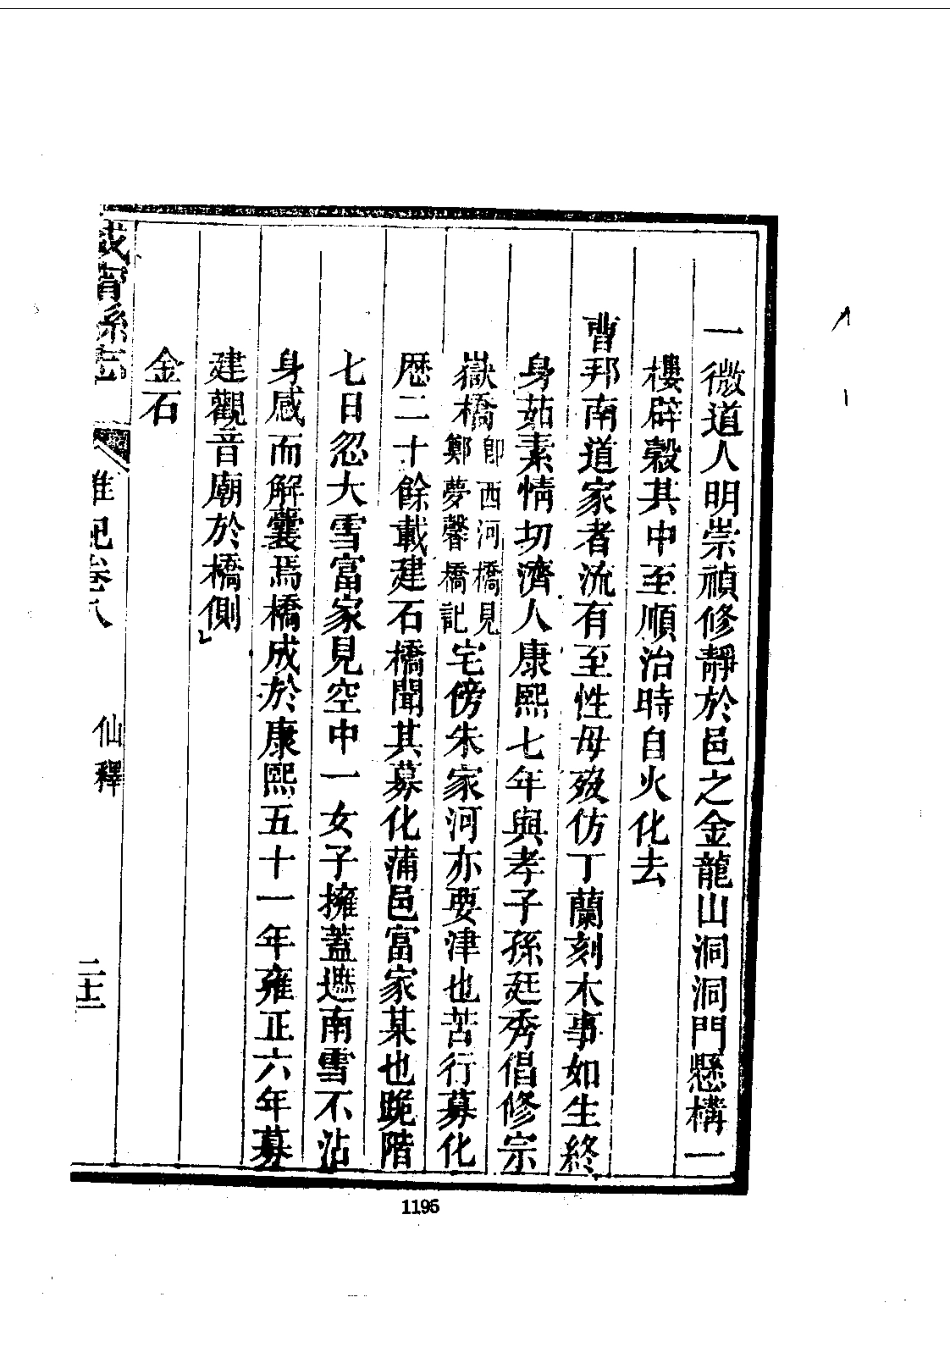 一微道人明崇禎修靜於邑之金龍山洞洞門懸構一
樓辟穀其中至順治時自火化去
曹邦南道家者流有至性母歿仿丁蘭刻木事如生終
身茹素情切濟人康熙七年與孝子孫廷秀倡修宗
嶽橋卽西河橋見鄭夢馨橋記宅傍朱家河亦要津也苦行募化
歷二十餘載建石橋聞其募化蒲邑富家某也跪階
七日忽大雪富家見空中一女子擁蓋遮南雪不沾
身感而解囊焉橋成於康熙五十一年雍正六年募
建觀音廟於橋側
金石
咸甯縣志 雜記卷八 仙釋 二十三
1195